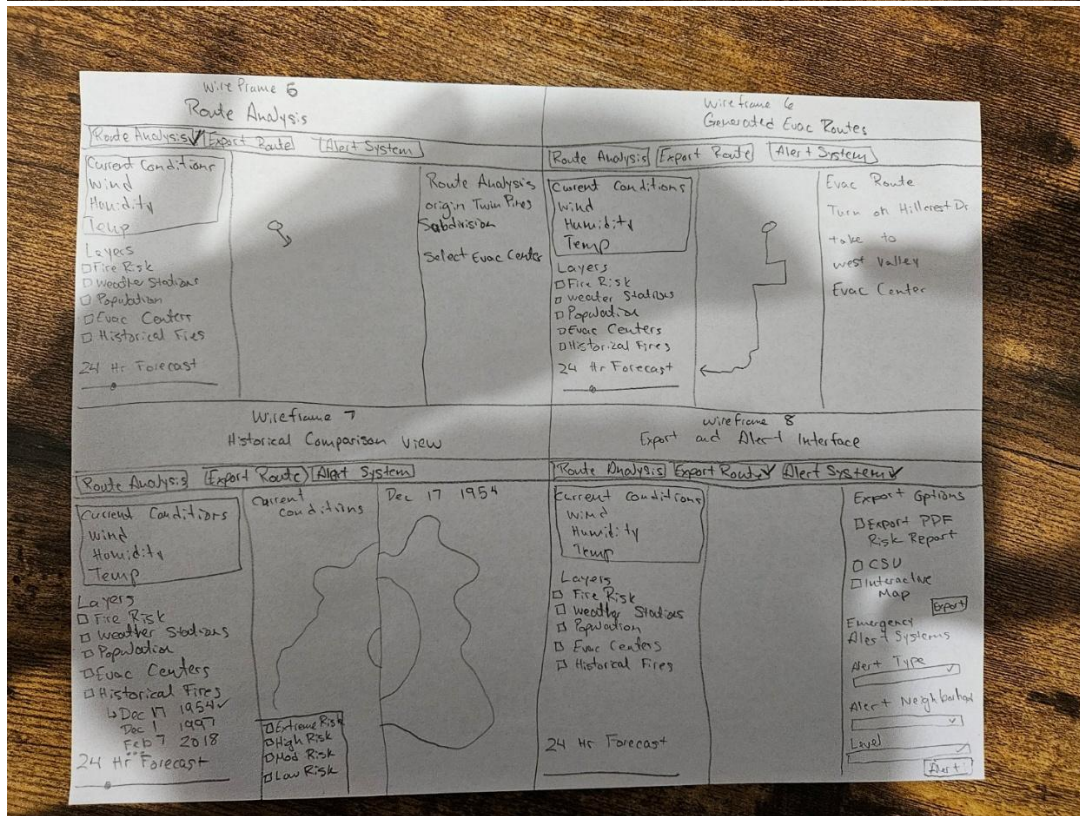 Wire Frame 5
Route Analysis
Route Analysis Export Route Alert System
Current Conditions
Wind
Humidity
Temp
Layers
Fire Risk
Weather Stations
Population
Evac Centers
Historical Fires
24 Hr Forecast
Route Analysis
origin Twin Pines
Subdivision
Select Evac Center
Wireframe 6
Generated Evac Routes
Route Analysis Export Route Alert System
Current Conditions
Wind
Humidity
Temp
Layers
Fire Risk
weater Stations
Population
Evac Centers
Historical Fires
24 Hr Forecast
Evac Route
Turn on Hillcrest Dr
take to
west Valley
Evac Center
Wireframe 7
Historical Comparison View
Route Analysis Export Route Alert System
Current Conditions
Wind
Humidity
Temp
Layers
Fire Risk
Weather Stations
Population
Evac Centers
Historical Fires
Dec 17 1954
Dec 1 1997
Feb 7 2018
24 Hr Forecast
Current
conditions
Dec 17 1954
Extreme Risk
High Risk
Mod Risk
Low Risk
Wireframe 8
Export and Alert Interface
Route Analysis Export Route Alert System
Current Conditions
Wind
Humidity
Temp
Layers
Fire Risk
Weather Stations
Population
Evac Centers
Historical Fires
24 Hr Forecast
Export Options
Export PDF
Risk Report
CSV
Interactive
Map
Export
Emergency
Alert Systems
Alert Type
Alert Neighborhood
Level
Alert